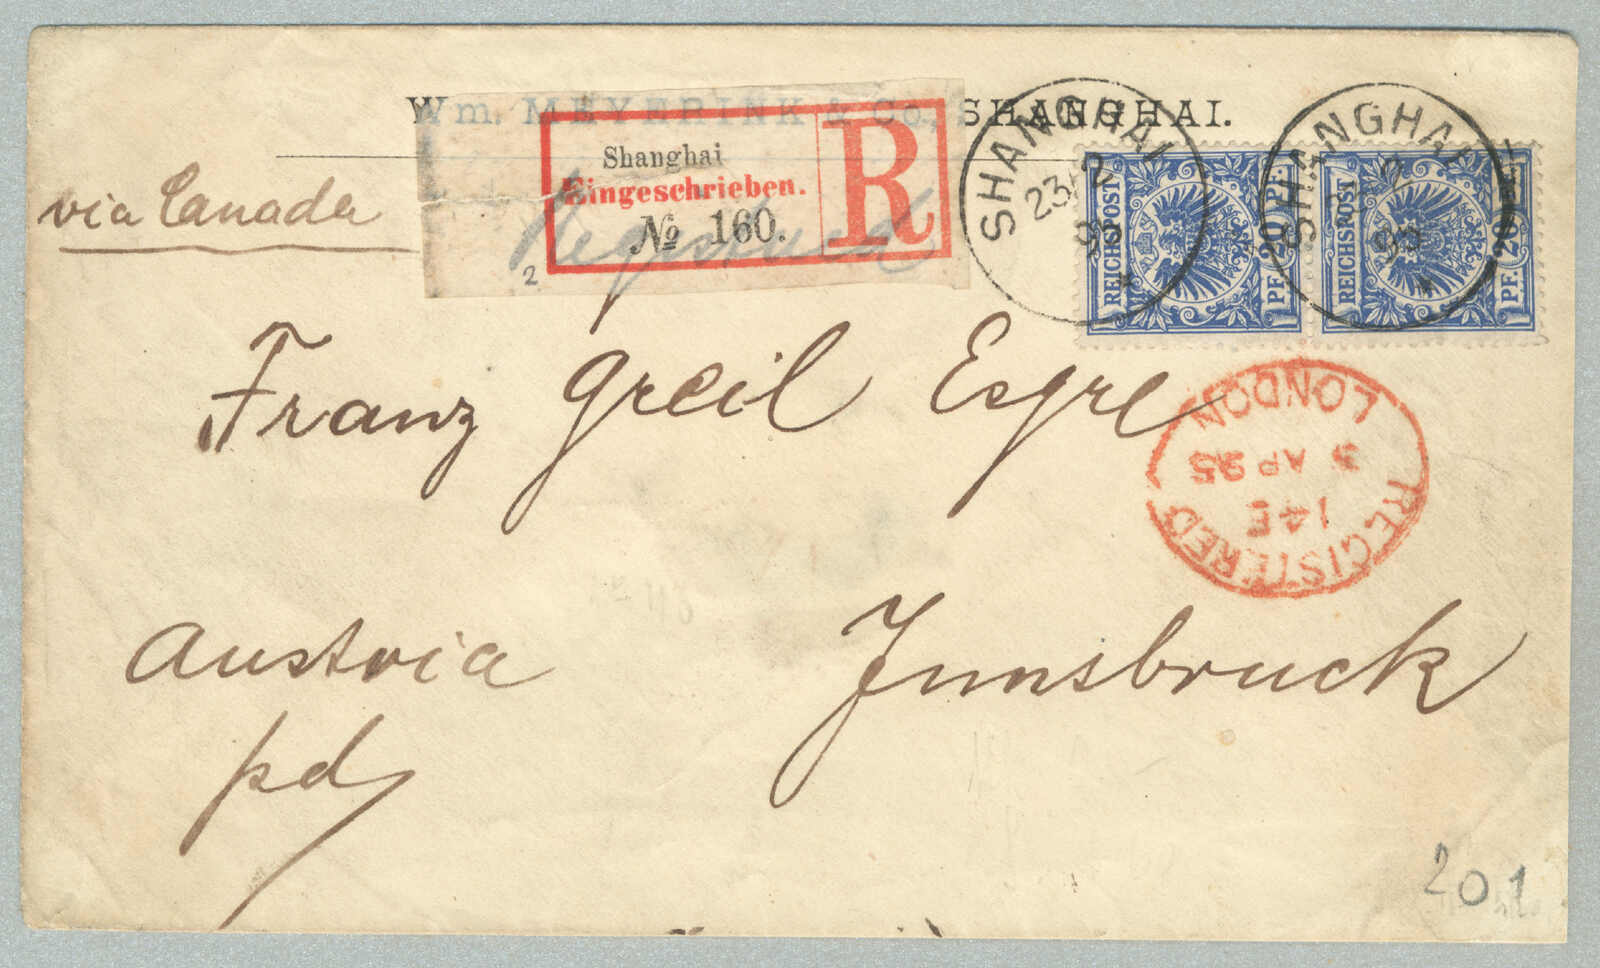 Wm. MEYERINK & Co., SHANGHAI.
via Canada
Shanghai
Eingeschrieben.
№ 160.
R
Registered
2
SHANGHAI
23 2
95
*
SHANGHAI
2
95
*
REICHSPOST
20 PF.
20 PF.
REICHSPOST
20 PF.
20 PF.
Franz Greil Esqre
LONDON
9 AP 95
14 E
REGISTERED
Austria
Innsbruck
pd
201